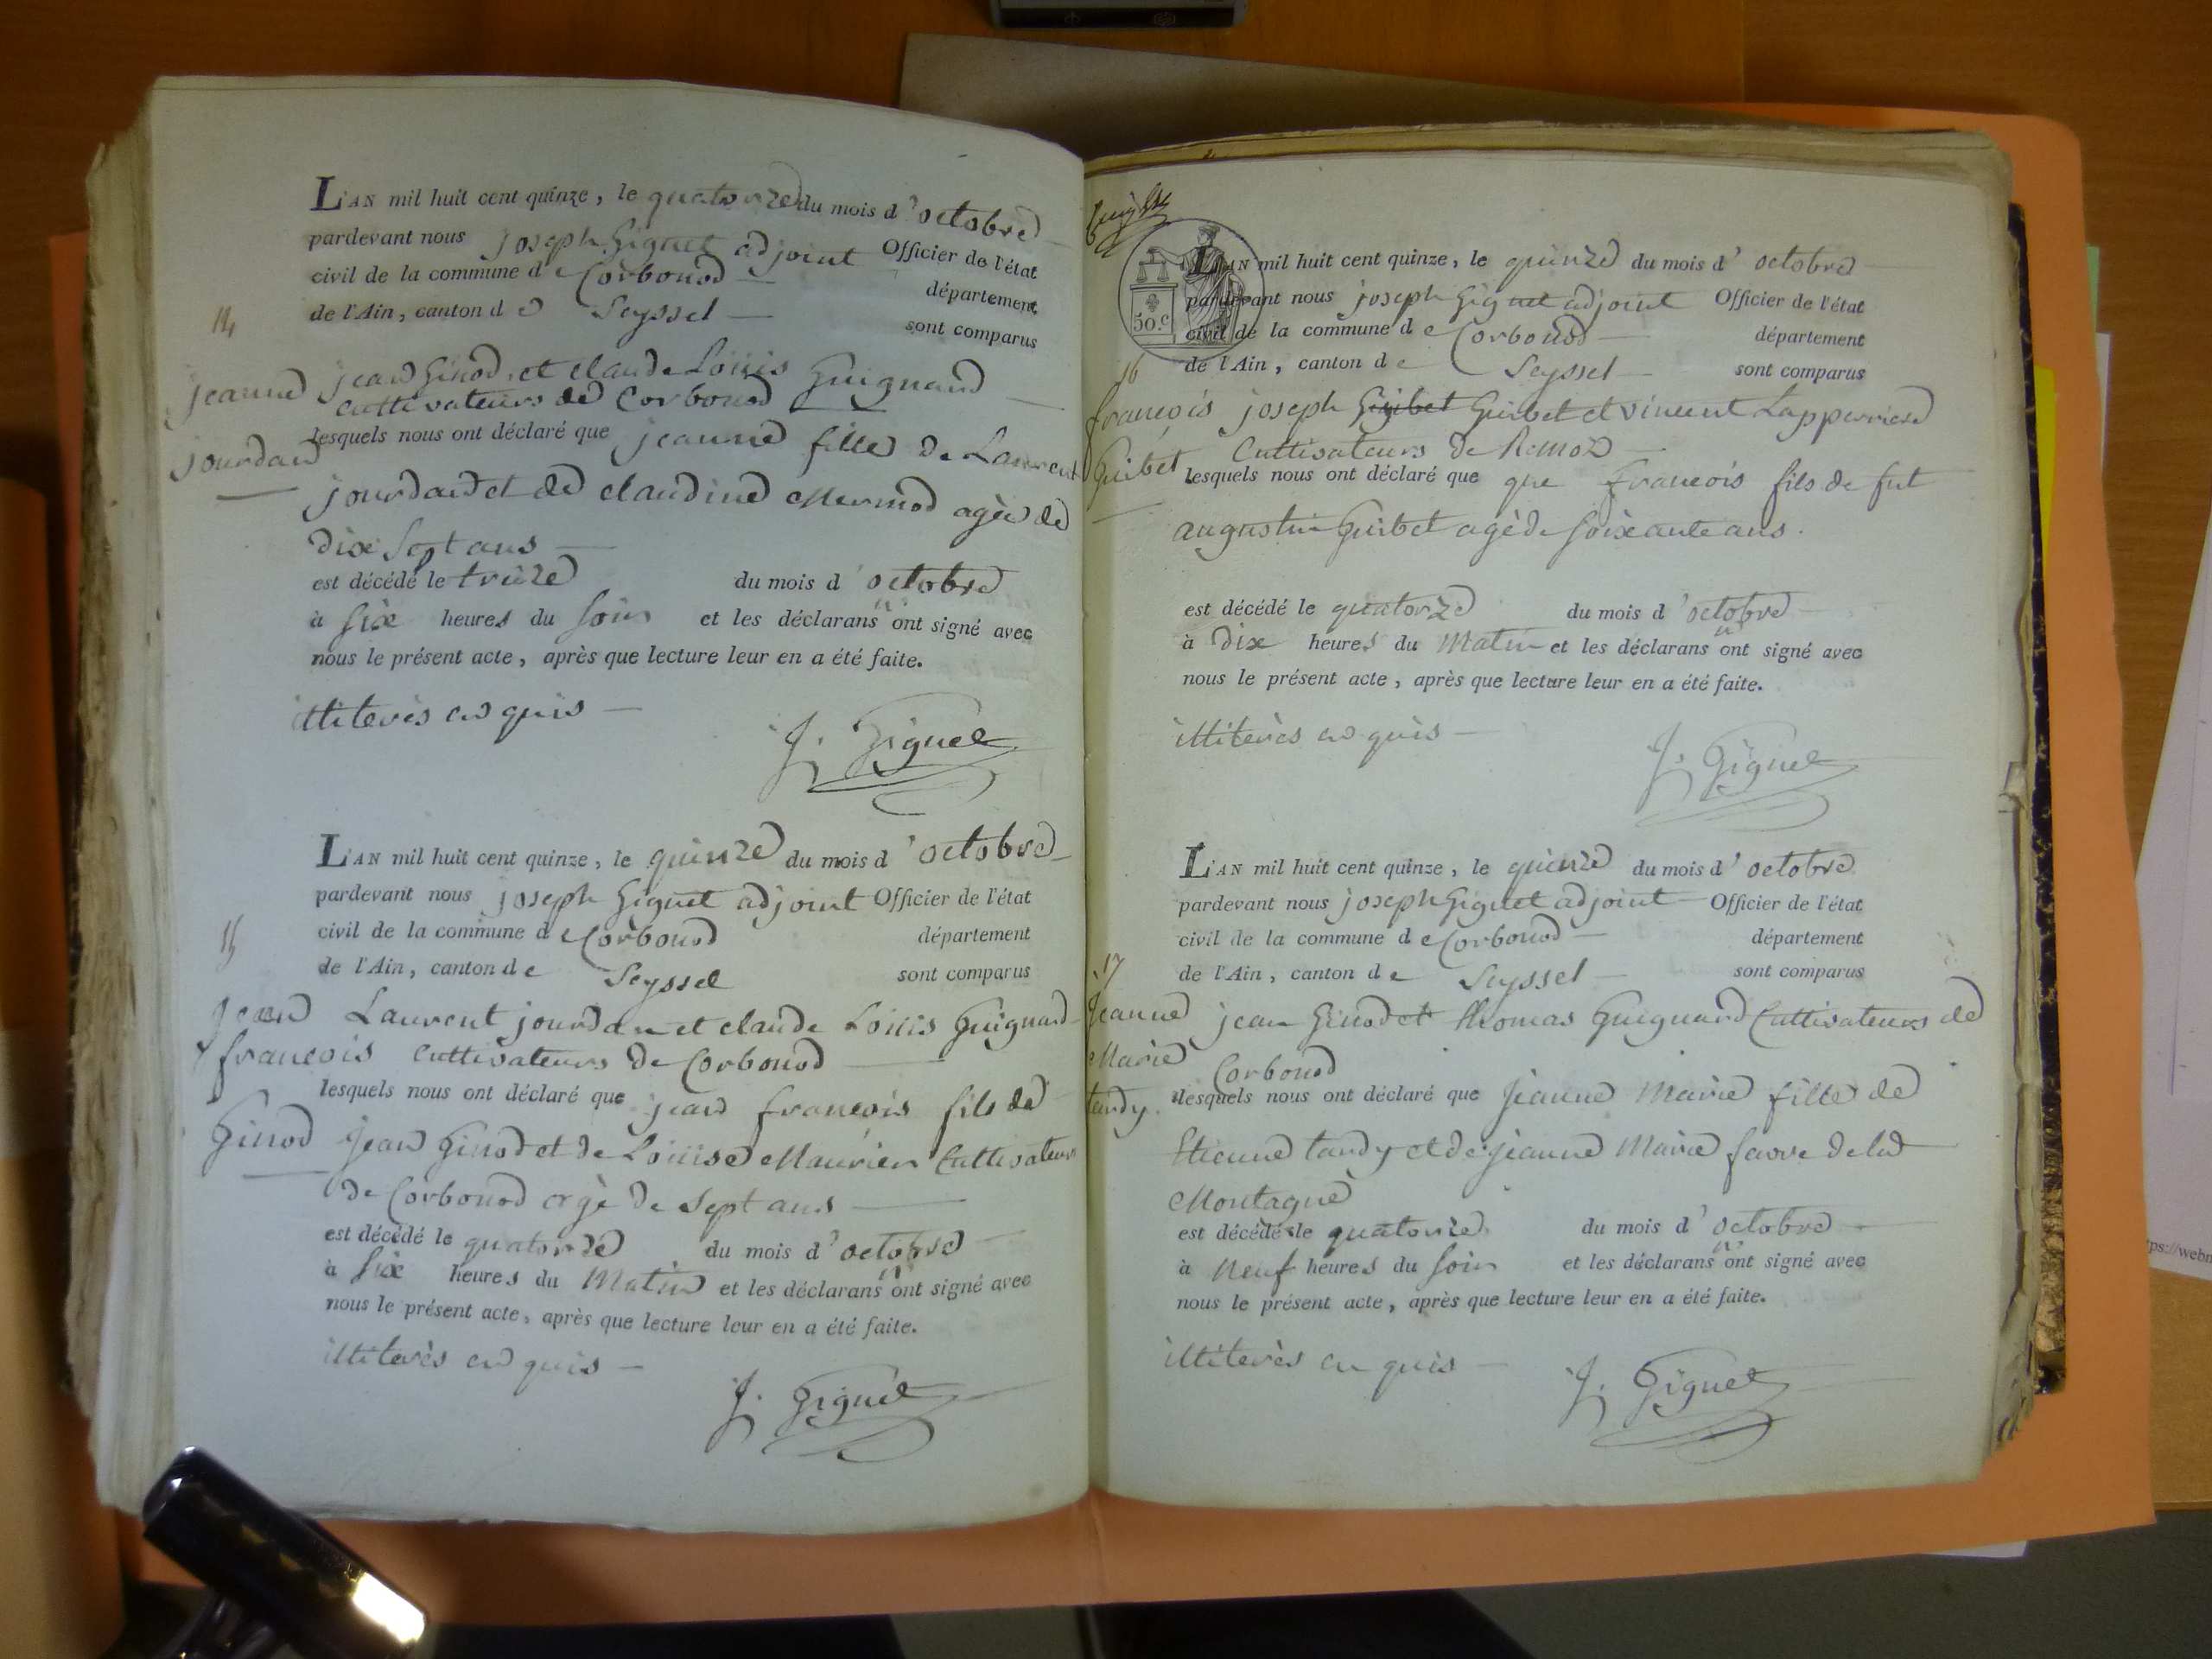 L'AN mil huit cent quinze, le quatorze du mois d'octobre
pardevant nous joseph Giguet adjoint Officier de l'état
civil de la commune de Corbonod département
de l'Ain, canton de Seyssel sont comparus
14
jeanne
jourdan
jean Ginod, et claude Louis Guignard
cultivateurs de Corbonod
lesquels nous ont déclaré que jeanne fille de Laurent
jourdan et de claudine Mermod agèe de
dix Sept ans
est décédé le treize du mois d'octobre
à Six heures du Soir et les déclarans n'ont signé avec
nous le présent acte, après que lecture leur en a été faite.
illiterès en quis
J. Giguet
L'AN mil huit cent quinze, le quinze du mois d'octobre
pardevant nous joseph Giguet adjoint Officier de l'état
civil de la commune de Corbonod département
de l'Ain, canton de Seyssel sont comparus
15
Jean
françois
Ginod
Laurent jourdan et claude Louis Guignard
cultivateurs de Corbonod
lesquels nous ont déclaré que jean françois fils de
Jean Ginod et de Louise Maurier Cultivateurs
de Corbonod agè de Sept ans
est décédé le quatorze du mois d'octobre
à Six heures du Matin et les déclarans n'ont signé avec
nous le présent acte, après que lecture leur en a été faite.
illiterès en quis
J. Giguet
50.c
L'AN mil huit cent quinze, le quinze du mois d'octobre
pardevant nous joseph Giguet adjoint Officier de l'état
civil de la commune de Corbonod département
de l'Ain, canton de Seyssel sont comparus
16
françois
Guibet
joseph Guibet Guibet et vincent Lapperriere
Cultivateurs de Remoz
lesquels nous ont déclaré que que françois fils de fut
augustin Guibet agè de Soixante ans.
est décédé le quatorze du mois d'octobre
à Dix heures du Matin et les déclarans n'ont signé avec
nous le présent acte, après que lecture leur en a été faite.
illiterès en quis
J. Giguet
L'AN mil huit cent quinze, le quinze du mois d'octobre
pardevant nous joseph Giguet adjoint Officier de l'état
civil de la commune de Corbonod département
de l'Ain, canton de Seyssel sont comparus
17
Jeanne
Marie
tardy.
jean Ginod et thomas Guignard Cultivateurs de
Corbonod
lesquels nous ont déclaré que Jeanne Marie fille de
Etienne tardy et de jeanne Marie favre de la
Montagne
est décédé le quatorze du mois d'octobre
à Neuf heures du Soir et les déclarans n'ont signé avec
nous le présent acte, après que lecture leur en a été faite.
illiterès en quis
J. Giguet